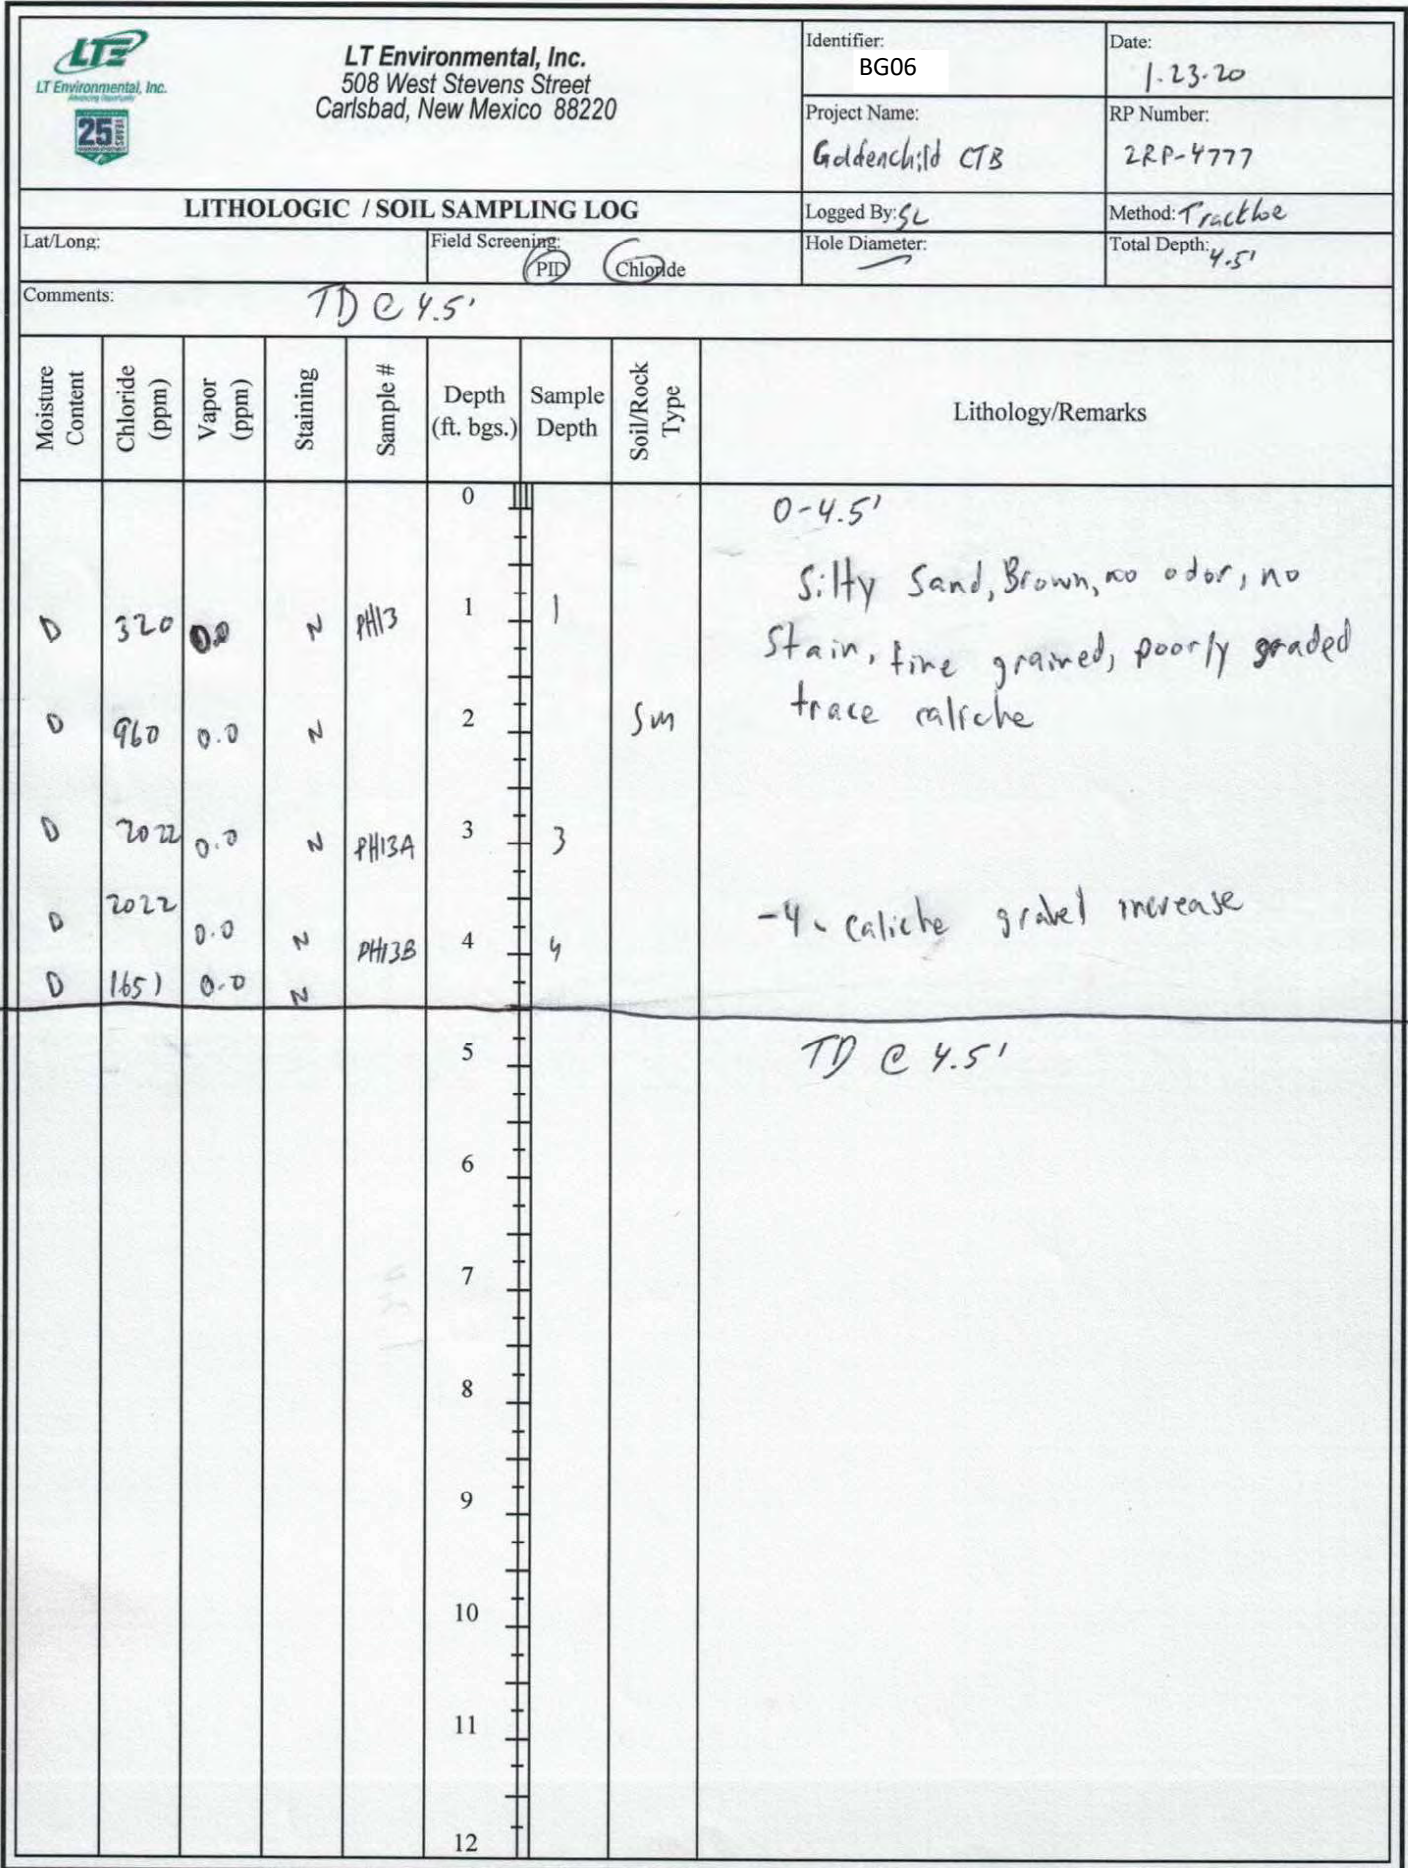 LTE
LT Environmental, Inc.
Advancing Opportunity
25 YEARS
LT Environmental, Inc.
508 West Stevens Street
Carlsbad, New Mexico 88220
Identifier:
BG06
Date:
1.23.20
Project Name:
Goldenchild CTB
RP Number:
2RP-4777
LITHOLOGIC / SOIL SAMPLING LOG
Logged By: SL
Method: Trackhoe
Lat/Long:
Field Screening:
PID Chloride
Hole Diameter: —
Total Depth: 4.5'
Comments: TD @ 4.5'
Moisture Content
Chloride (ppm)
Vapor (ppm)
Staining
Sample #
Depth (ft. bgs.)
Sample Depth
Soil/Rock Type
Lithology/Remarks
0
0-4.5'
Silty Sand, Brown, no odor, no
D 320 0.0 N PH13 1 1
Stain, fine grained, poorly graded
trace caliche
D 960 0.0 N 2 Sm
D 2022 0.0 N PH13A 3 3
D 2022 0.0 N PH13B 4 4 -4. caliche gravel increase
D 1651 0.0 N
5 TD @ 4.5'
6
7
8
9
10
11
12